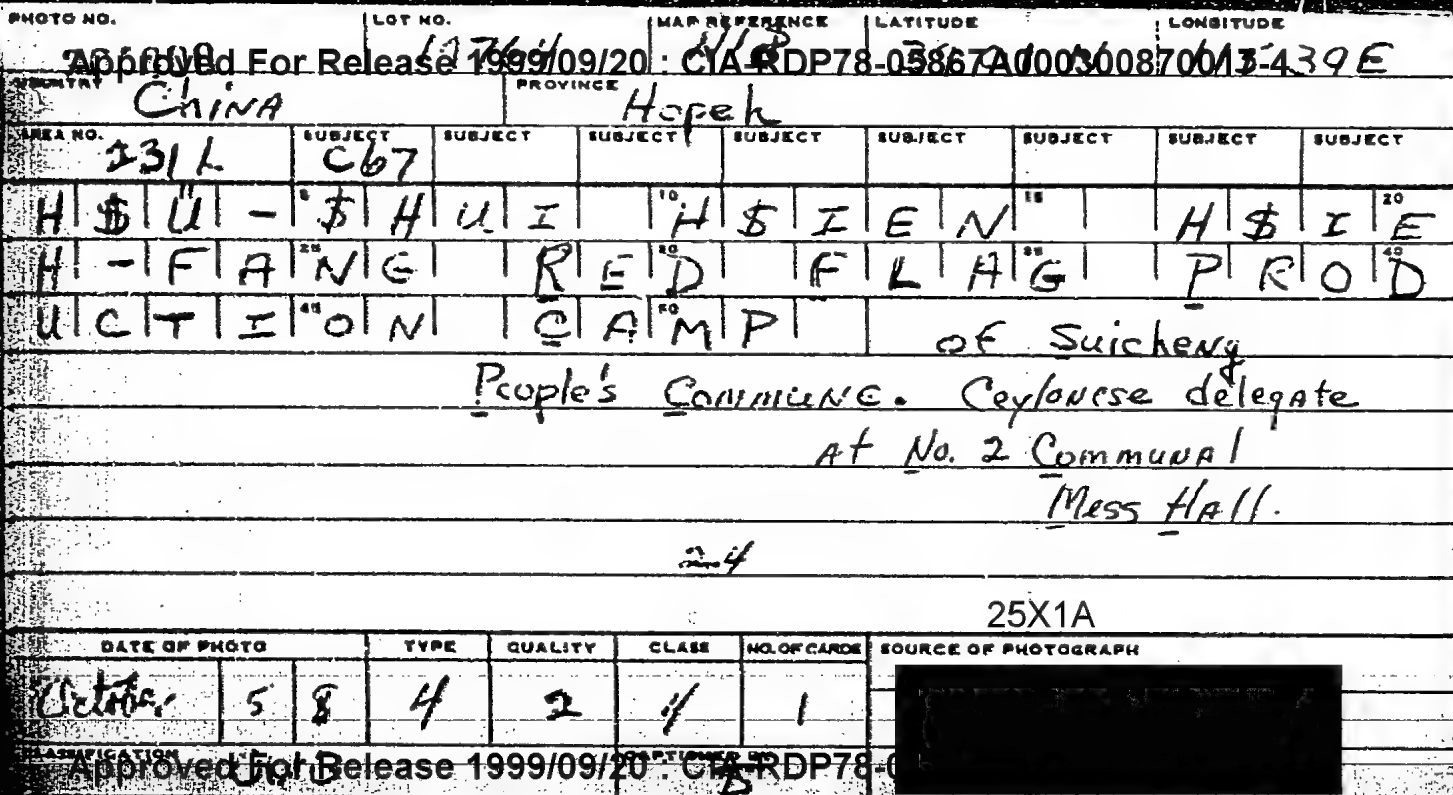 PHOTO NO. LOT NO. MAP REFERENCE LATITUDE LONGITUDE
Approved For Release 1999/09/20 : CIA-RDP78-05867A000300870013-4 39E
COUNTRY China PROVINCE Hopeh
AREA NO. 231L SUBJECT C67 SUBJECT SUBJECT SUBJECT SUBJECT SUBJECT SUBJECT SUBJECT
H$Ü-$HUI H$IEN H$IE
H-FANG RED FLAG PROD
UCTION CAMP of Suicheng
People's Commune. Ceylonese delegate
at No. 2 Communal
Mess Hall.
24
25X1A
DATE OF PHOTO TYPE QUALITY CLASS NO. OF CARDS SOURCE OF PHOTOGRAPH
October 58 4 2 4 1
CLASSIFICATION
Approved For Release 1999/09/20 : CIA-RDP78-0